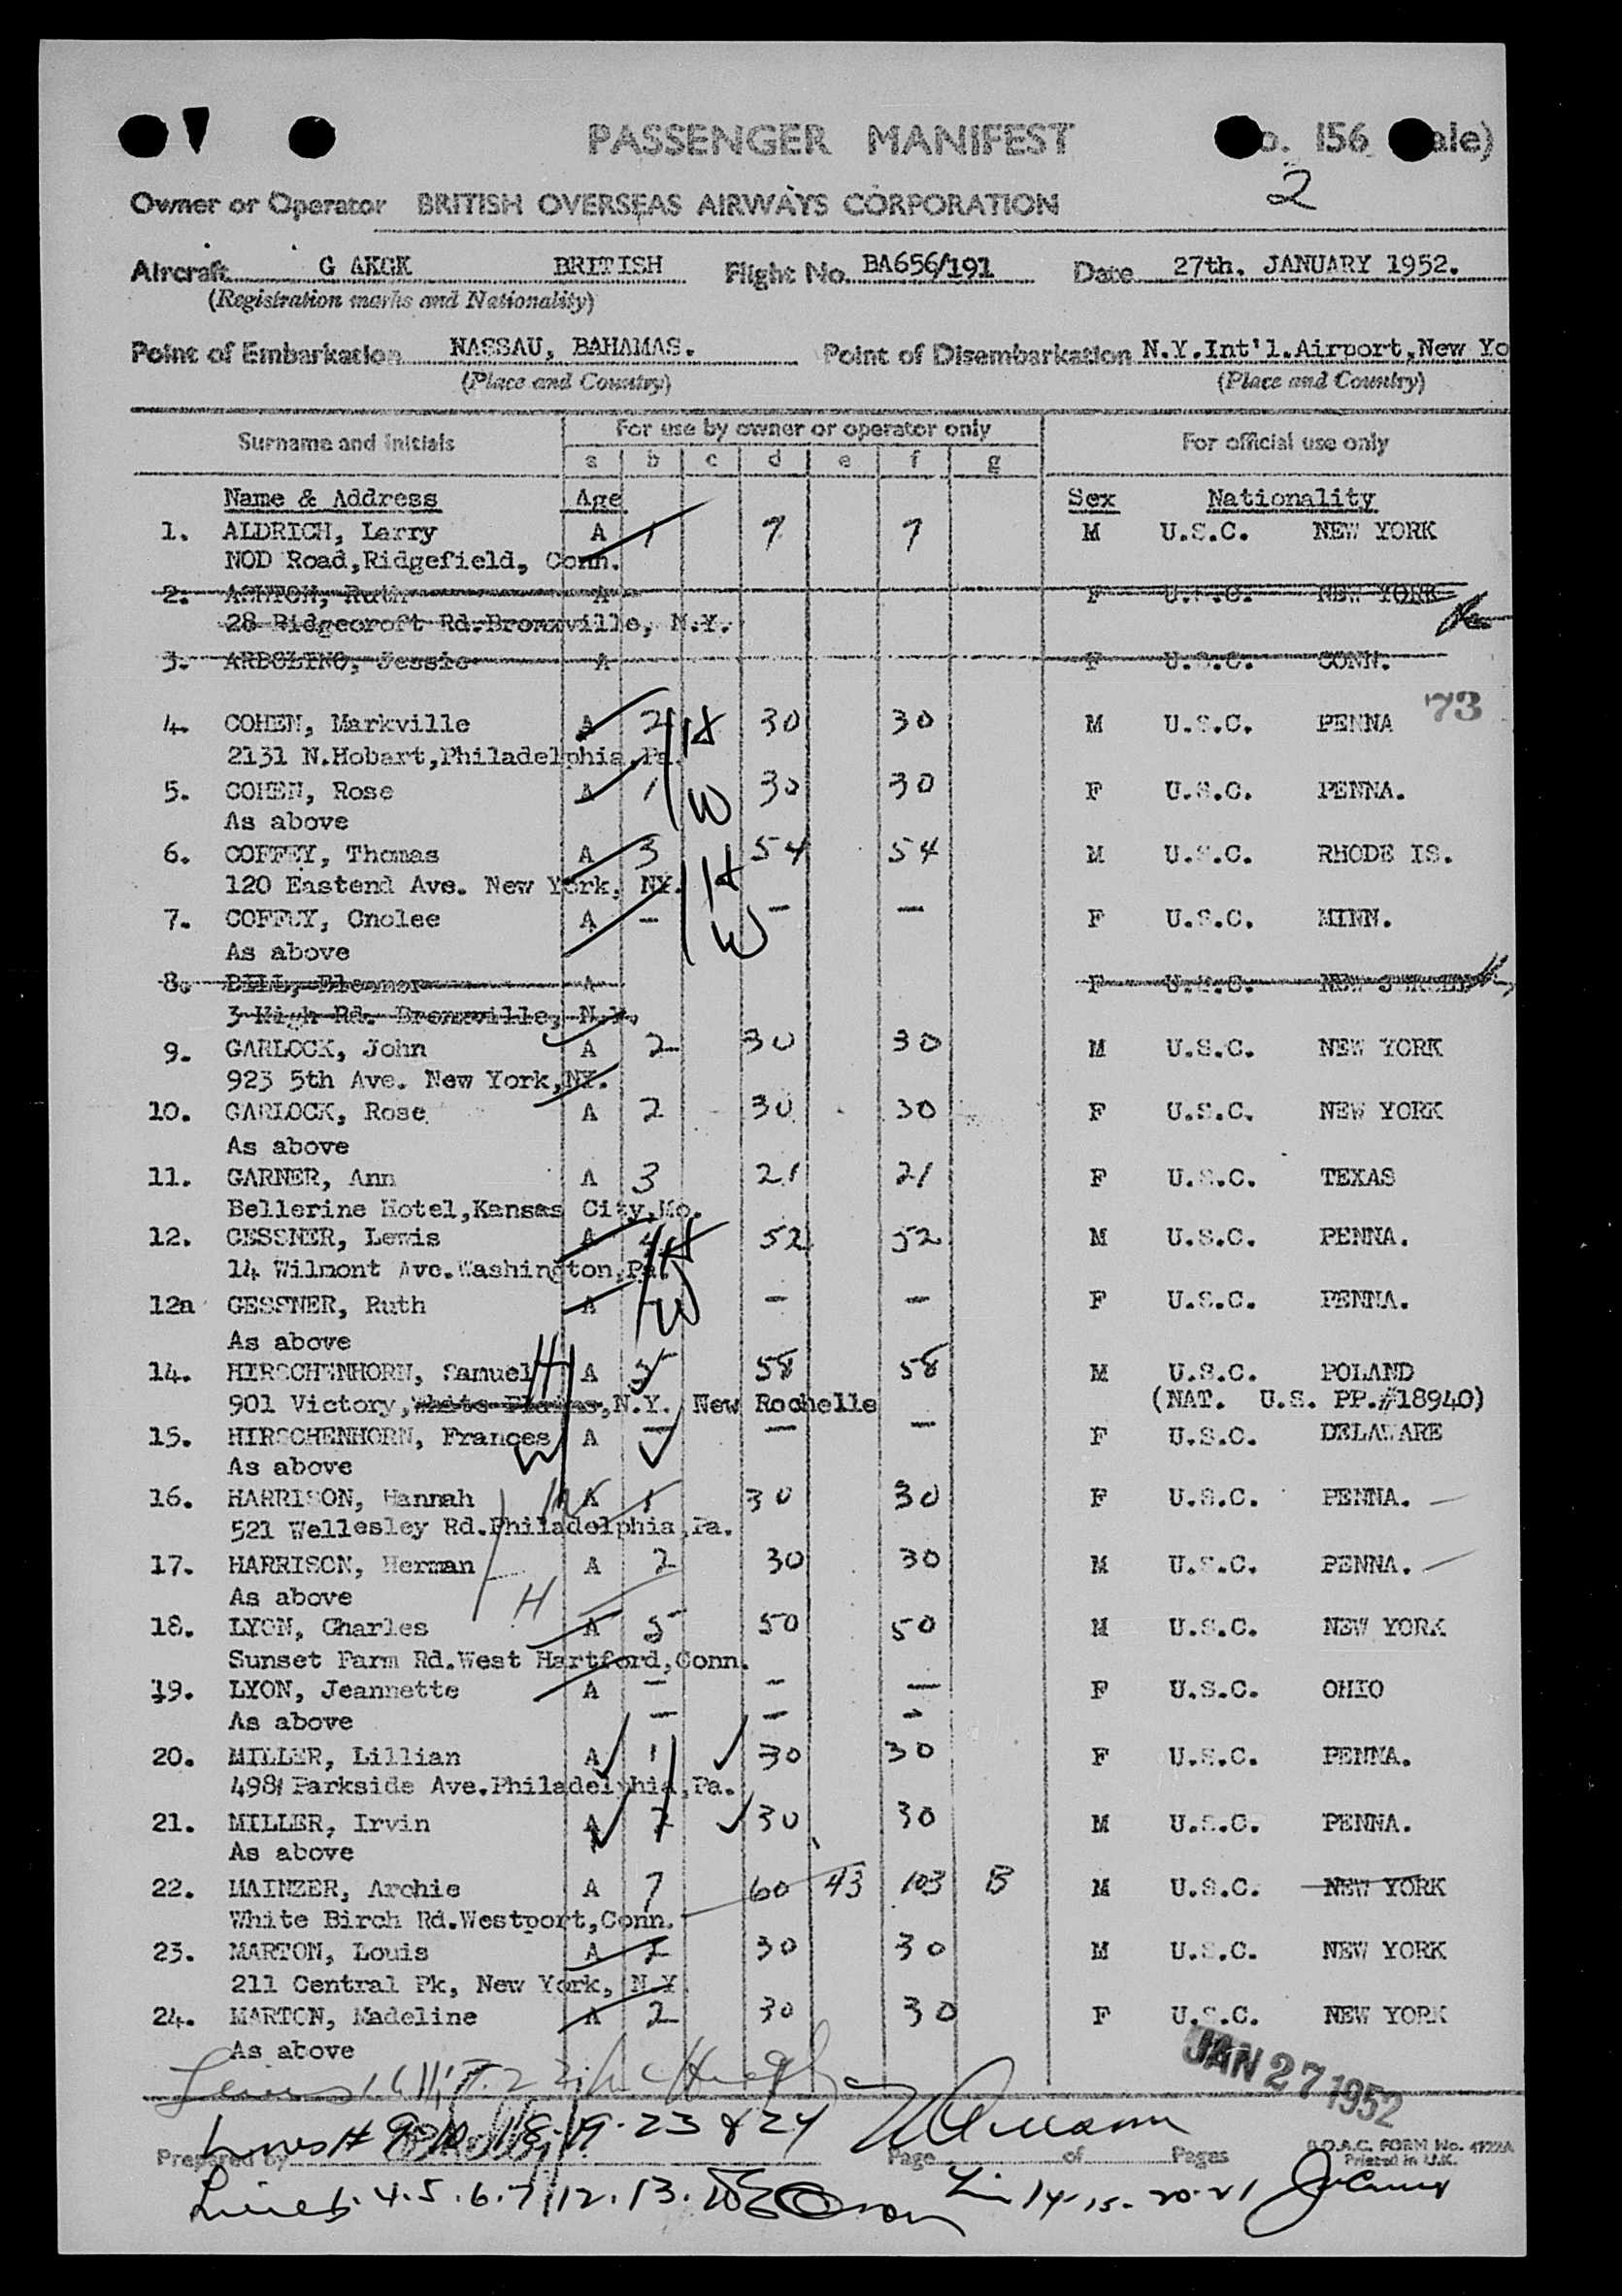 PASSENGER MANIFEST
156
2
Owner or Operator BRITISH OVERSEAS AIRWAYS CORPORATION
Aircraft G AKGK BRITISH Flight No. BA656/191 Date 27th. JANUARY 1952.
(Registration marks and Nationality)
Point of Embarkation NASSAU, BAHAMAS. Point of Disembarkation N.Y.Int'l.Airport,New Yo
(Place and Country) (Place and Country)
Surname and Initials For use by owner or operator only For official use only
a b c d e f g
Name & Address Age Sex Nationality
1. ALDRICH, Larry A 1 7 7 M U.S.C. NEW YORK
NOD Road,Ridgefield, Conn.
2. ASHTON, Ruth A F U.S.C. NEW YORK
28 Ridgecroft Rd.Bronxville, N.Y.
3. ARBOLINO, Jessie A F U.S.C. CONN.
73
4. COHEN, Markville A 2 H 30 30 M U.S.C. PENNA
2131 N.Hobart,Philadelphia,Pa.
5. COHEN, Rose A 1 W 30 30 F U.S.C. PENNA.
As above
6. COFFEY, Thomas A 3 H 54 54 M U.S.C. RHODE IS.
120 Eastend Ave. New York, NY.
7. COFFEY, Onolee A - W - - F U.S.C. MINN.
As above
8. BILL, Eleanor A F U.S.C. NEW JERSEY
3 High Rd. Bronxville, N.Y.
9. GARLOCK, John A 2 30 30 M U.S.C. NEW YORK
923 5th Ave. New York,NY.
10. GARLOCK, Rose A 2 30 30 F U.S.C. NEW YORK
As above
11. GARNER, Ann A 3 21 21 F U.S.C. TEXAS
Bellerine Hotel,Kansas City,Mo.
12. GESSNER, Lewis A 4 H 52 52 M U.S.C. PENNA.
14 Wilmont Ave.Washington,Pa.
12a GESSNER, Ruth A - W - - F U.S.C. PENNA.
As above
14. HIRSCHENHORN, Samuel H A 5 58 58 M U.S.C. POLAND
901 Victory,White Plains,N.Y. New Rochelle (NAT. U.S. PP.#18940)
15. HIRSCHENHORN, Frances W A - - - F U.S.C. DELAWARE
As above
16. HARRISON, Hannah W A 1 30 30 F U.S.C. PENNA.
521 Wellesley Rd.Philadelphia,Pa.
17. HARRISON, Herman A 2 30 30 M U.S.C. PENNA.
As above H
18. LYON, Charles A 5 50 50 M U.S.C. NEW YORK
Sunset Farm Rd.West Hartford,Conn.
19. LYON, Jeannette A - - - F U.S.C. OHIO
As above - - -
20. MILLER, Lillian A 1 30 30 F U.S.C. PENNA.
498 Parkside Ave.Philadelphia,Pa.
21. MILLER, Irvin A 2 30 30 M U.S.C. PENNA.
As above
22. MAINZER, Archie A 7 60 43 103 B M U.S.C. NEW YORK
White Birch Rd.Westport,Conn.
23. MARTON, Louis A 2 30 30 M U.S.C. NEW YORK
211 Central Pk, New York, N.Y.
24. MARTON, Madeline A 2 30 30 F U.S.C. NEW YORK
As above
JAN 27 1952
Lines # 9-10 18-19-23 & 24
Prepared by Page of Pages B.O.A.C. FORM No. 4722A
Printed in U.K.
Lines 4.5.6.7 12.13. Lin 14-15-20-21